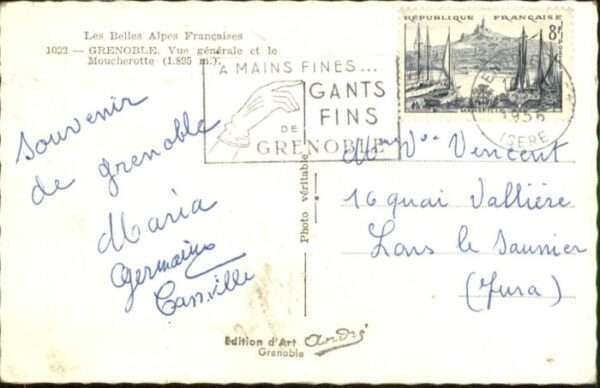 Les Belles Alpes Françaises
1023 — GRENOBLE. Vue générale et le
Moucherotte (1.895 m.).
A MAINS FINES...
GANTS
FINS
DE
GRENOBLE
RÉPUBLIQUE FRANÇAISE
8F
1956
ISÈRE
Souvenir
de grenoble
Maria
Germaine
Photo véritable
Mme Vve Vincent
16 quai Vallière
Lons le Saunier
(Jura)
Edition d'Art André
Grenoble